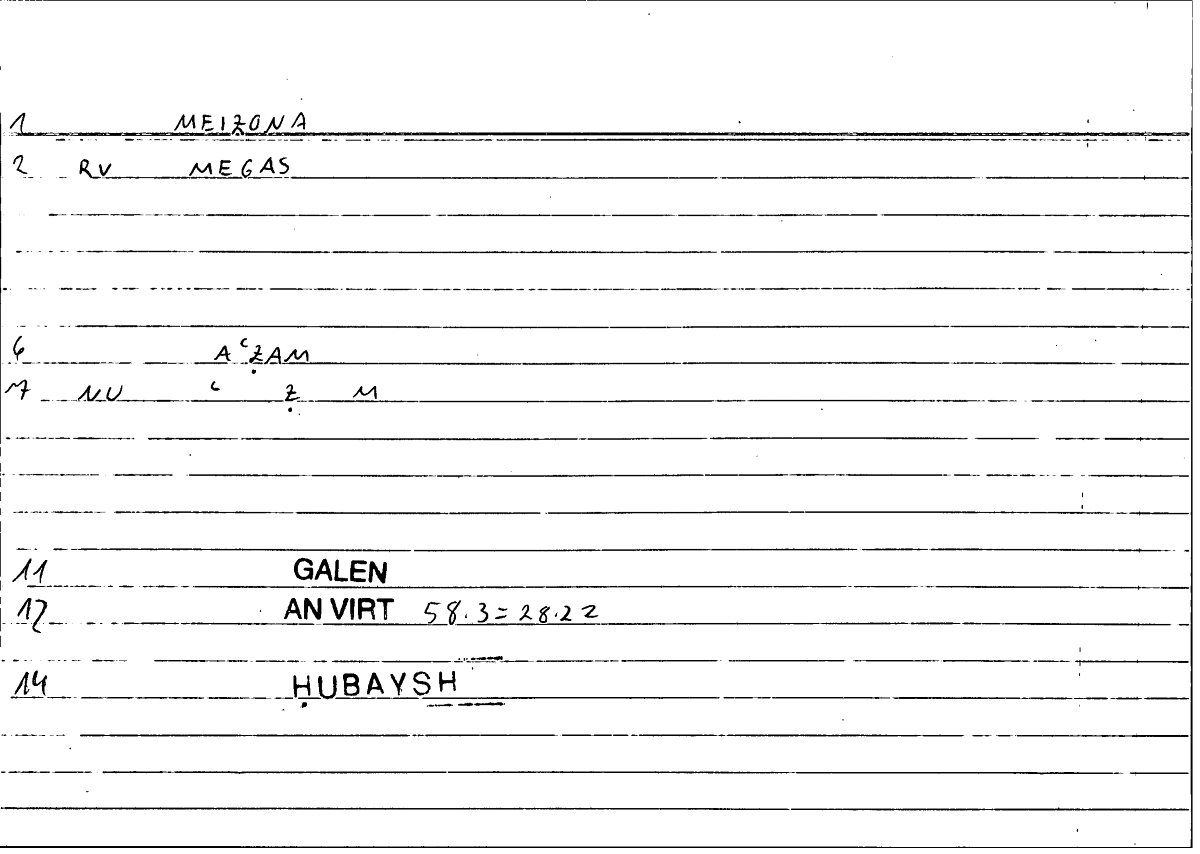 1 MEIZONA
2 RV MEGAS
6 AʿẒAM
7 NU ʿ Ẓ M
11 GALEN
12 AN VIRT 58.3=28.22
14 ḤUBAYSH